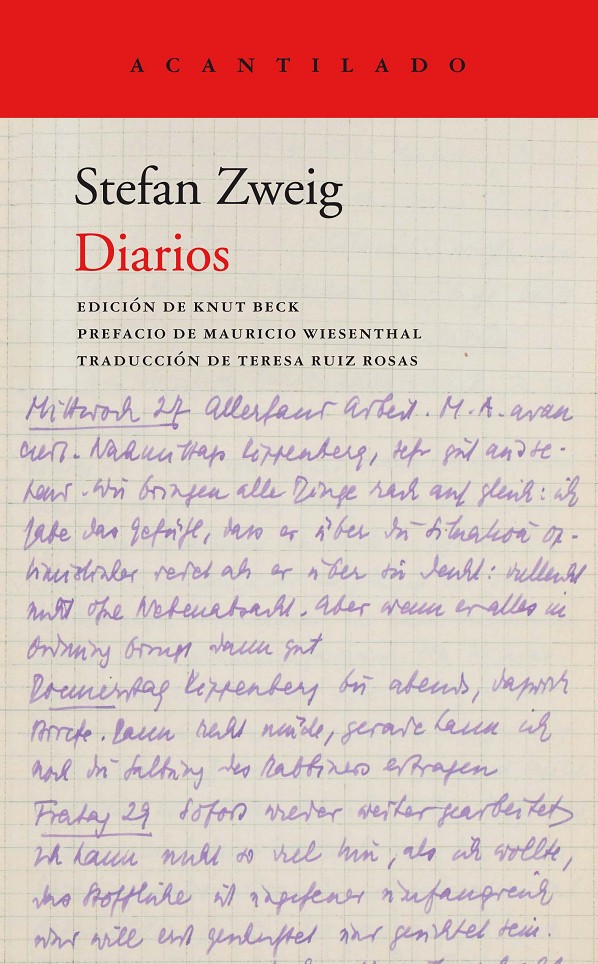 ACANTILADO
Stefan Zweig
Diarios
EDICIÓN DE KNUT BECK
PREFACIO DE MAURICIO WIESENTHAL
TRADUCCIÓN DE TERESA RUIZ ROSAS
Mittwoch 27 Allerhand Arbeit. M. A. avan
ciert. Nachmittags Kippenberg, sehr gut ausse-
hend. Wir bringen alle Dinge rasch auf gleich: ich
habe das Gefühl, dass er über die Situation op-
timistischer redet als er über sie denkt: vielleicht
nicht ohne Nebenabsicht. Aber wenn er alles in
Ordnung bringt dann gut
Donnerstag Kippenberg bis abends, dazwischen
Briefe. Dann recht müde, gerade kann ich
noch die des Rabbiners ertragen
Freitag 29 Sofort wieder weiter gearbeitet
Ich kann nicht so viel tun, als ich wollte,
das Stoffliche ist ungeheuer umfangreich
und will erst und gesichtet sein.